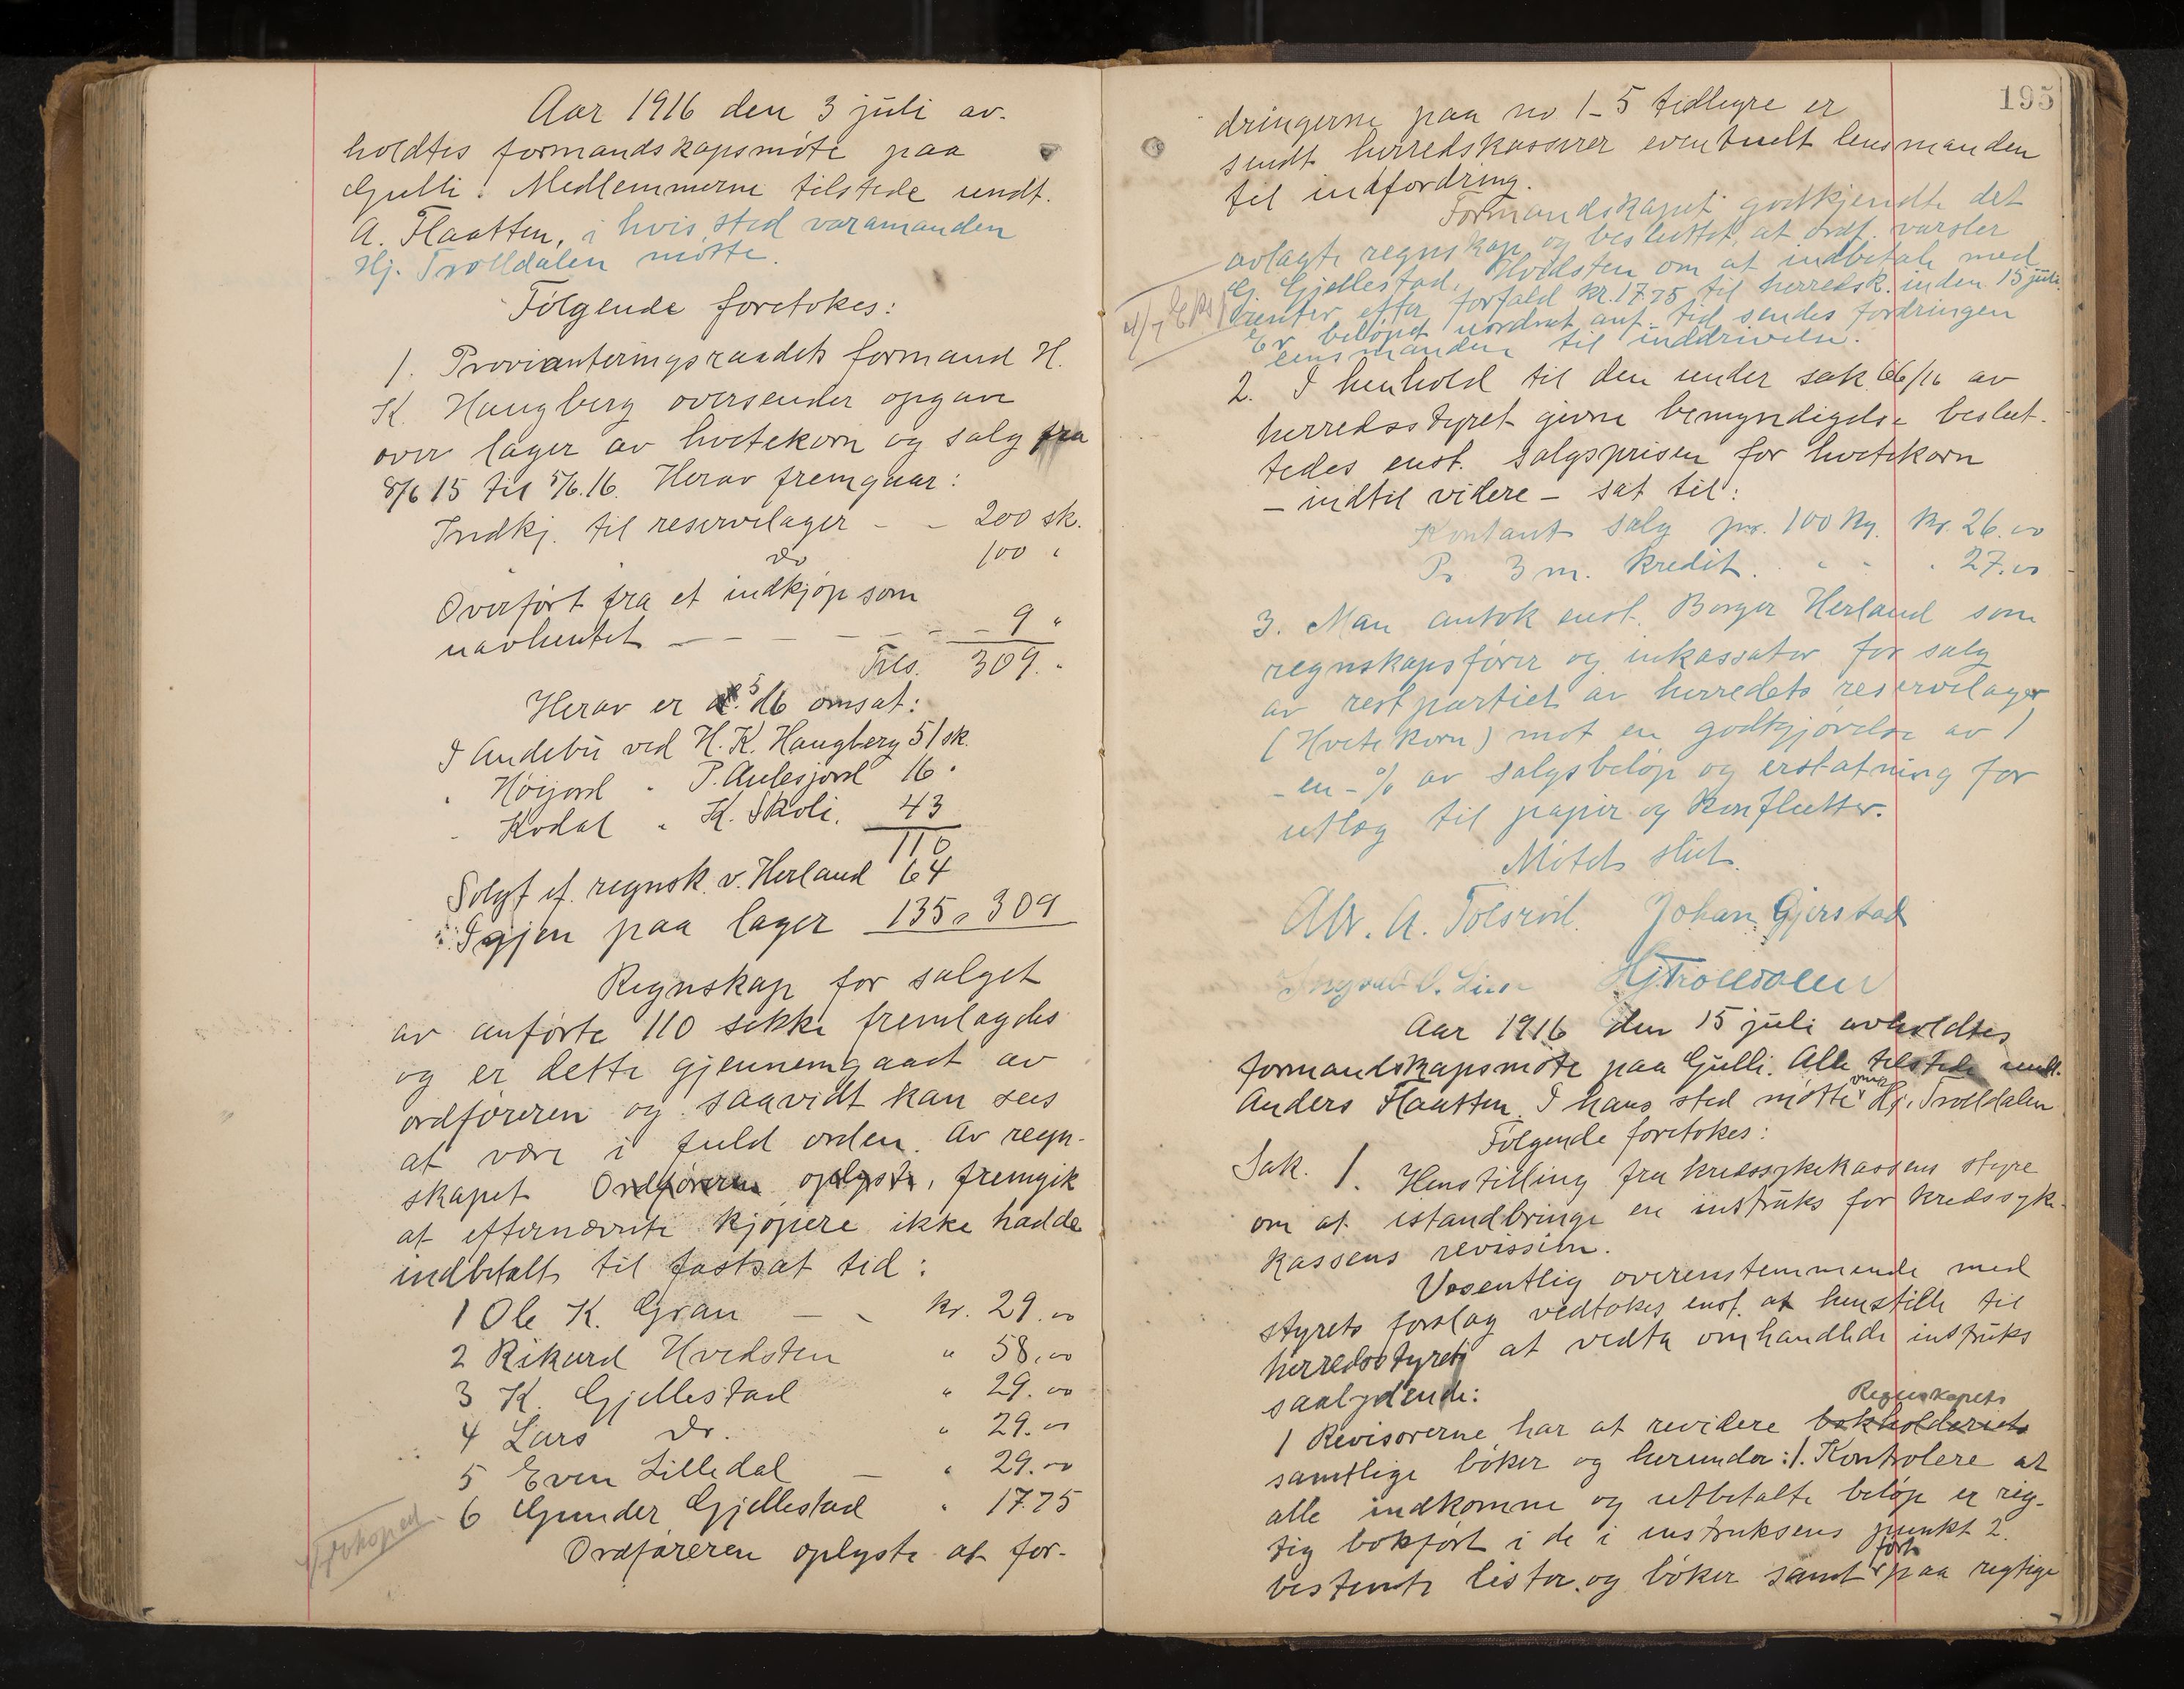 Aar 1916 den 3 juli av-
holdtes formandskapsmöte paa
Gulli. Medlemmerne tilstede undt.
A. Flaatten, i hvis sted varamanden
Hj. Trolldalen mötte.
Fölgende foretokes:
1. Provianteringsraadets formand H.
K. Haugberg oversender opgave
over lager av hvetekorn og salg fra
8/6 15 til 5/6.16. Herav fremgaar:
Indkj. til reservelager - - 200 sk.
do 100 "
Overfört fra et indkjöp som
uavhentet - - - - - - 9 "
Tils. 309. "
Herav er d. 5/6 omsat:
I Andebu ved H. K. Haugberg 51 sk.
" Höijord " P. Aulesjord 16 "
" Kodal " K. Skoli. 43
110
Solgt ef. regnsk. v. Herland 64
Igjen paa lager 135 " 309
Regnskap for salget
av anförte 110 sekke fremlagdes
og er dette gjennemgaaet av
ordföreren og saavidt kan sees
at være i fuld orden. Av regn-
skapet Ordföreren oplyste, fremgik
at efternævnte kjöpere ikke hadde
indbetalt til fastsat tid:
1 Ole K. Gran - - kr. 29.00
2 Rikard Hvidsten " 58.00
3 K. Gjellestad " 29.00
4 Lars do. " 29.00
5 Even Lilledal - " 29.00
6 Gunder Gjellestad " 17.75
Ordföreren oplyste at for-
195
dringerne paa no 1-5 tidligre er
sendt herredskasserer eventuelt lensmanden
til indfordring.
Formandskapet godkjendte det
avlagte regnskap og besluttet, at ordf. varsler
G. Gjellestad, Hvidsten om at indbetale med
renter efter forfald kr. 17.75 til herredsk. inden 15 juli.
Er belöpet uordnet anf. tid sendes fordringen
lensmanden til inddrivelse.
2. I henhold til den under sak 66/16 av
herredsstyret givne bemyndigelse beslut-
tedes enst. salgsprisen for hvetekorn
- indtil videre - sat til:
Kontant salg pr. 100 kg. kr. 26.00
Pr 3 m. kredit. " " " 27.00
3. Man antok enst. Borger Herland som
regnskapsförer og inkassator for salg
av restpartiet av herredets reservelager
(Hvetekorn) mot en godtgjörelse av 1
- en - % av salgsbelöp og erstatning for
utlæg til papir og konflutter.
Mötet slut.
Alv. A. Tolsröd. Johan Gjerstad
Ingvald O. Lien Hj Trolldalen
Aar 1916 den 15 juli avholdtes
formandskapsmöte paa Gulli. Alle tilstede undt.
Anders Flaatten. I hans sted mötte Hj. Trolldalen
Fölgende foretokes:
Sak. 1. Henstilling fra kredssykekassens styre
om at istandbringe en instruks for kredssyke-
kassens revission.
Vesentlig overenstemmende med
styrets forslag vedtokes enst. at henstille til
herredsstyret at vedta omhandlede instruks
saalydende:
Regnskapets
1 Revisorerne har at revidere bokholderiets
samtlige böker og herunder: 1. Kontrolere at
alle indkomne og utbetalte belöp er rig-
tig bokfört i de i instruksens punkt 2.
fört
bestemte lister og böker samt paa regtige